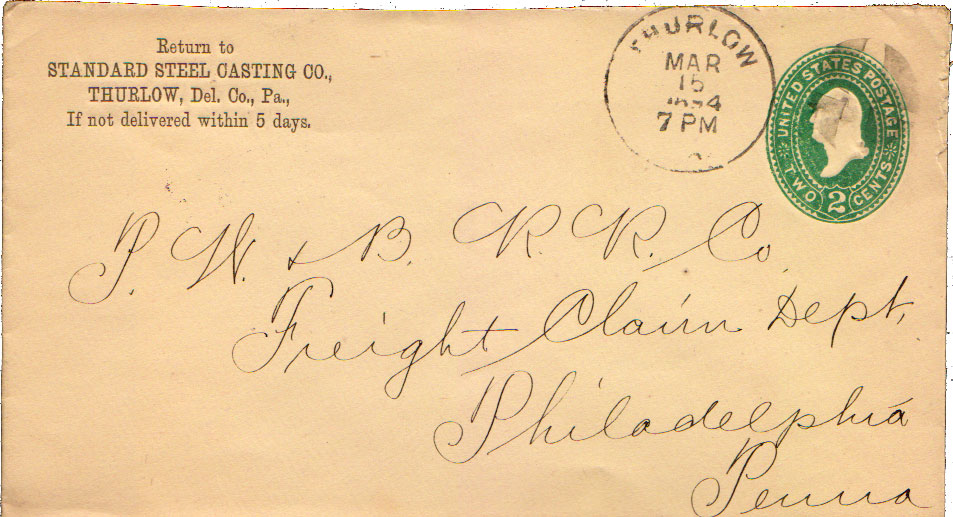 Return to
STANDARD STEEL CASTING CO.,
THURLOW, Del. Co., Pa.,
If not delivered within 5 days.
THURLOW
MAR
15
7 PM
UNITED STATES POSTAGE
TWO 2 CENTS
P. W. & B. R. R. Co.
Freight Claim Dept.
Philadelphia
Penna